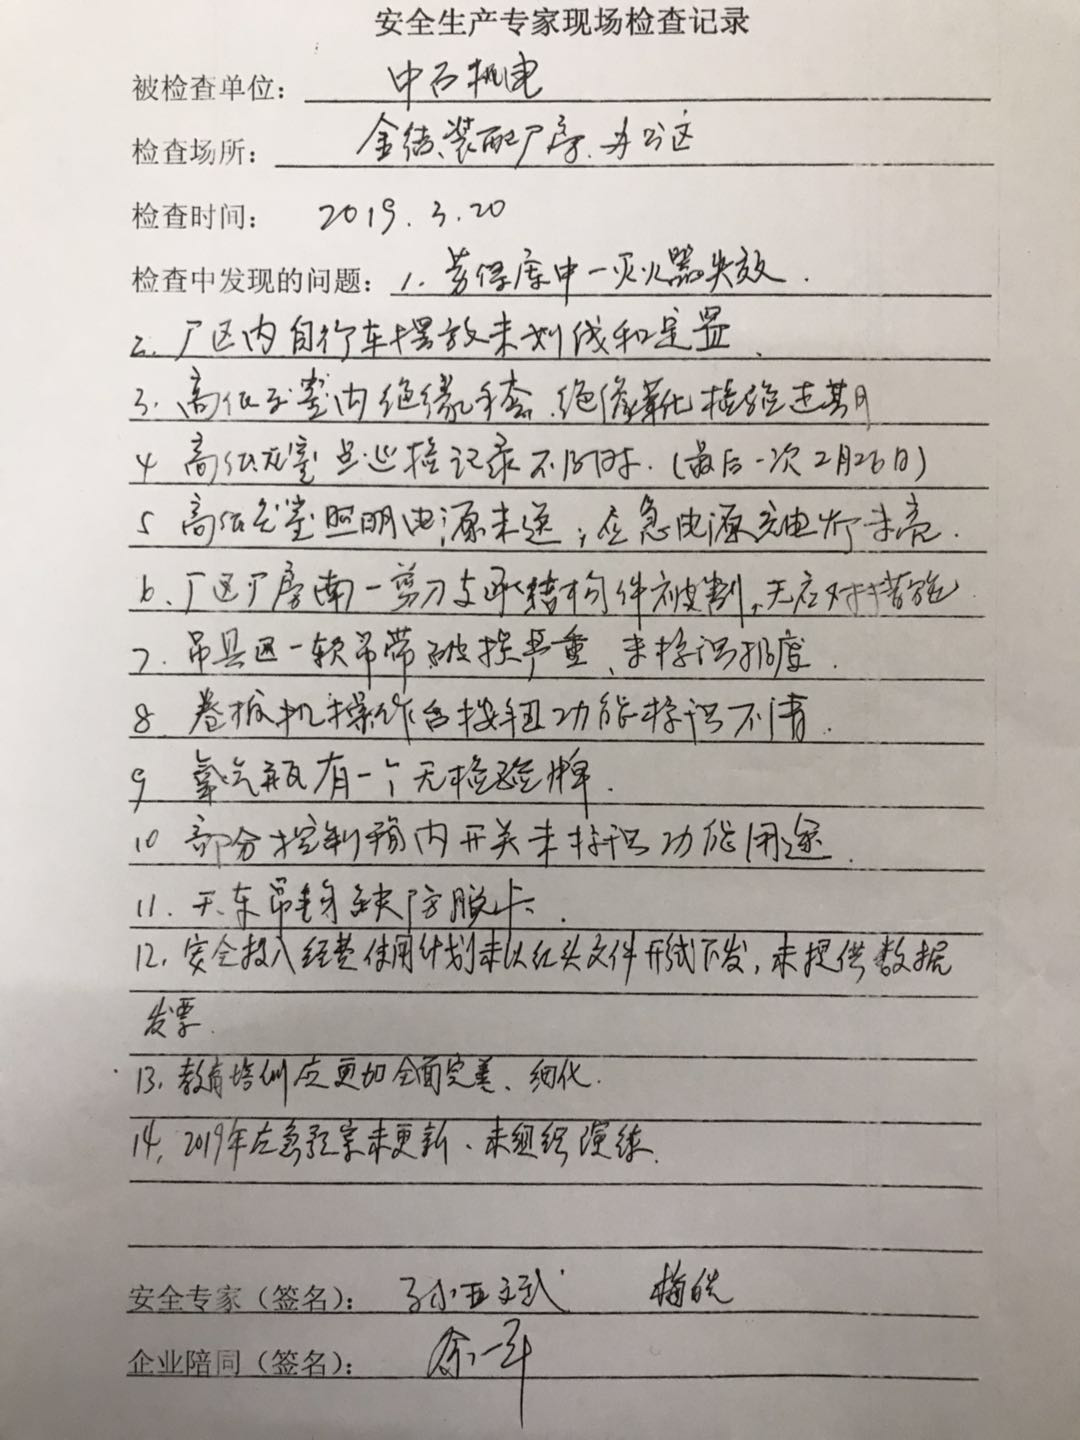 安全生产专家现场检查记录
被检查单位： 中石机电
检查场所： 金结、装配厂房、办公区
检查时间： 2019.3.20
检查中发现的问题： 1. 劳保库中一灭火器失效.
2. 厂区内自行车摆放未划线和定置.
3. 高低压室内绝缘手套、绝缘靴化检验过期
4 高低压室点巡检记录不及时.（最后一次2月26日）
5 高低压室照明电源未送；应急电源充电灯未亮.
6、厂区厂房南一剪刀支承结构件被割，无应对措施
7. 吊具区一软吊带破损严重、未标识报废.
8 卷板机操作台按钮功能标识不清.
9 氧气瓶有一个无检验牌.
10 部分控制箱内开关未标识功能用途.
11. 天车吊钩缺防脱卡.
12. 安全投入经费使用计划未以红头文件形式下发，未提供数据
发票.
13. 教育培训应更加全面完善、细化.
14. 2019年应急预案未更新、未组织演练.
安全专家（签名）：
企业陪同（签名）：